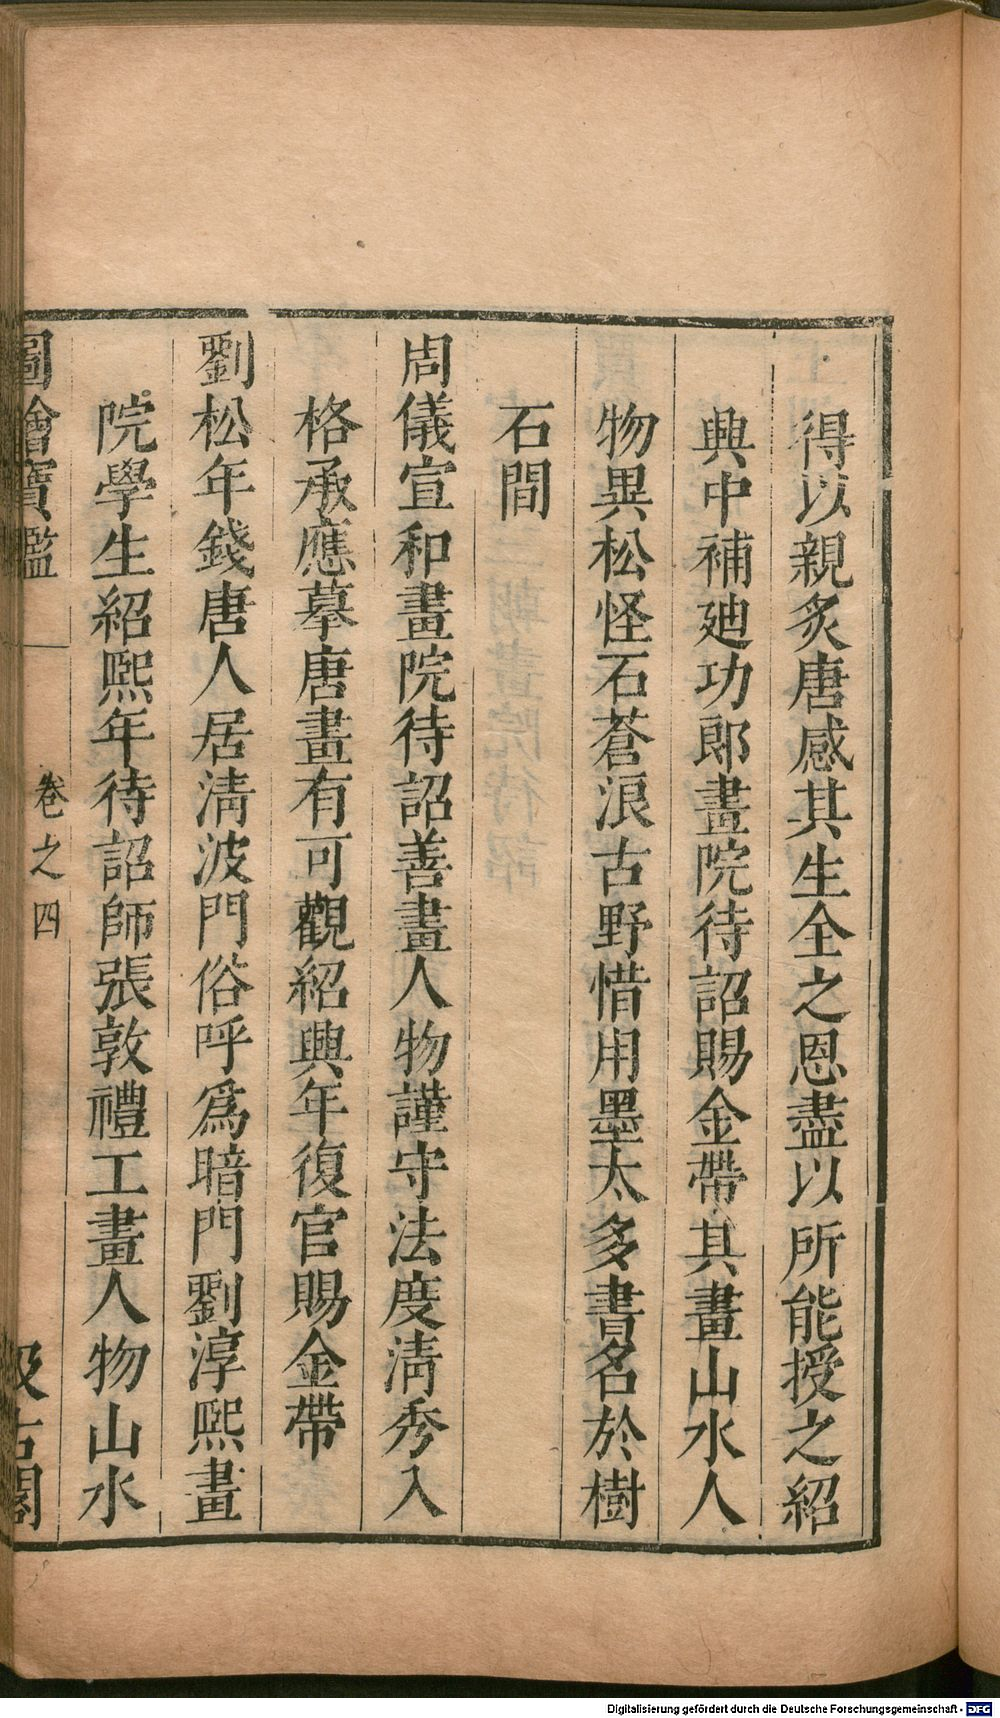 得以親炙唐感其生全之恩盡以所能授之紹
興中補廸功郎畫院待詔賜金帶其畫山水人
物異松怪石蒼浪古野惜用墨太多書名於樹
石間
周儀宣和畫院待詔善畫人物謹守法度清秀入
格承應摹唐畫有可觀紹興年復官賜金帶
劉松年錢唐人居清波門俗呼爲暗門劉淳熙畫
院學生紹熙年待詔師張敦禮工畫人物山水
圖繪寶鑑
卷之四
汲古閣
Digitalisierung gefördert durch die Deutsche Forschungsgemeinschaft - DFG